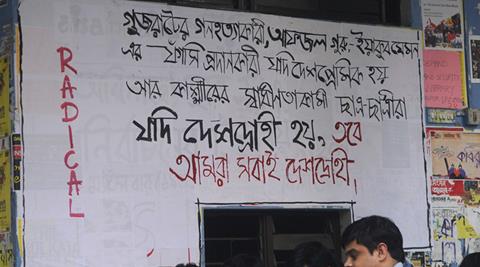 RADICAL
গুজরাটের গনহত্যাকারী, আফজল গুরু-ইয়াকুব মেমন
এর ফাঁসি প্রদানকারী যদি দেশপ্রেমিক হয়
আর কাশ্মীরের স্বাধীনতাকামী ছাত্র-ছাত্রীরা
যদি দেশদ্রোহী হয়, তবে
আমরা সবাই দেশদ্রোহী।